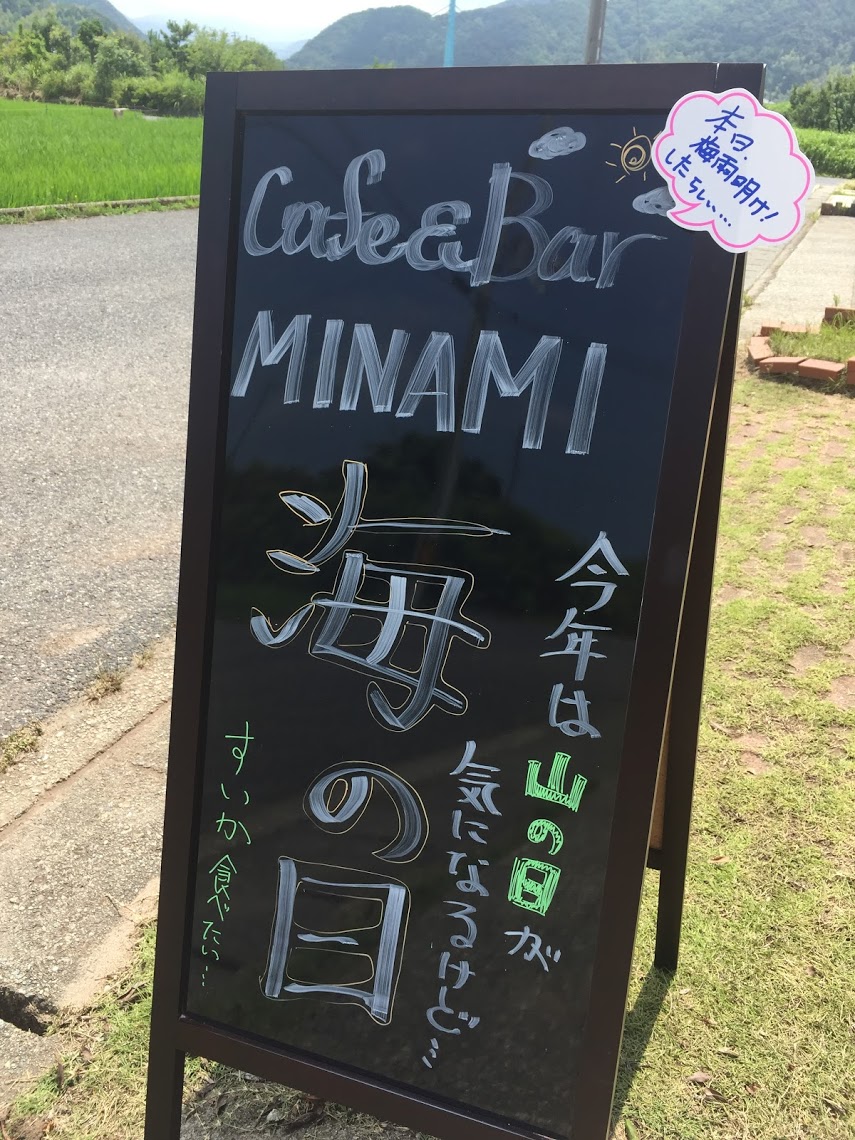 Cafe&Bar
MINAMI
本日、
梅雨明け!
したらしい…
今年は山の日が
気になるけど…
海の日
すいか食べたい…